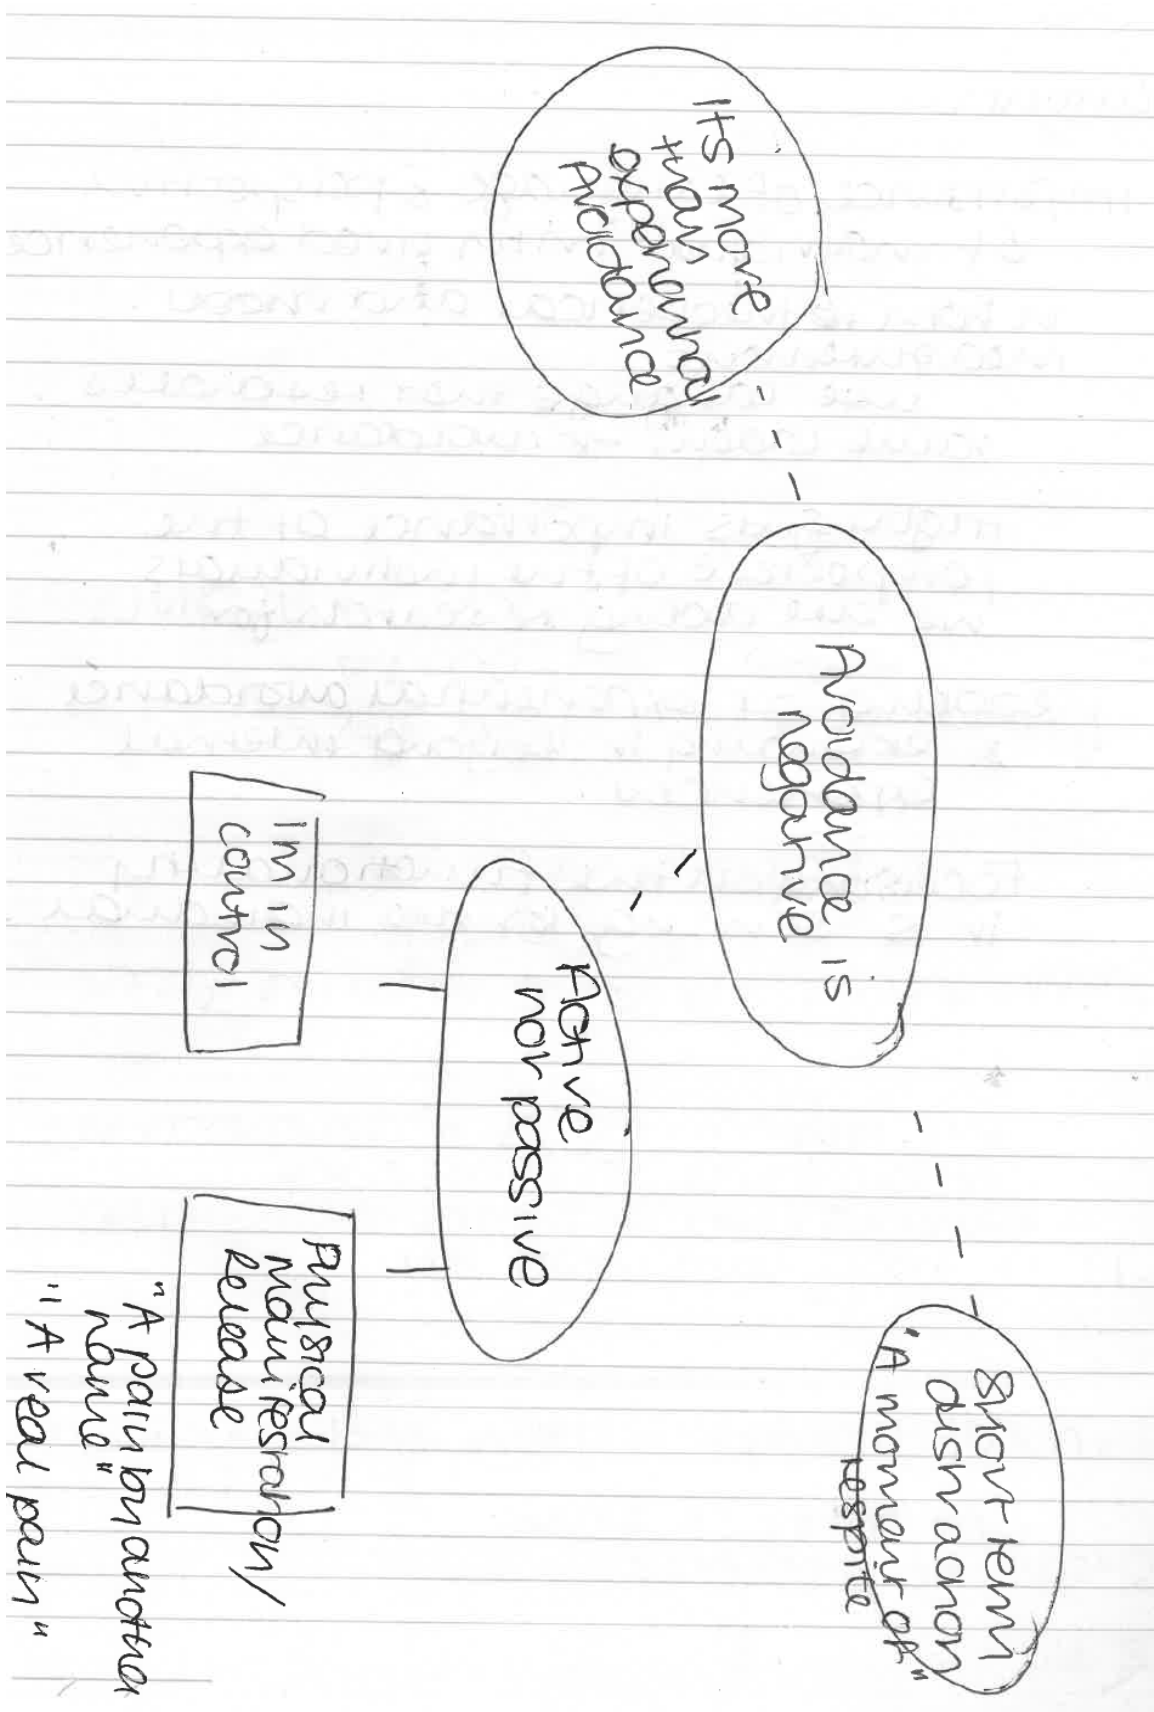 Its more
than
experiential
Avoidance
Avoidance is
negative
Short term
distraction
"A moment of"
respite
Active
not passive
Im in
control
Physical
manifestation/
Release
"A pain by another
name"
"A real pain"